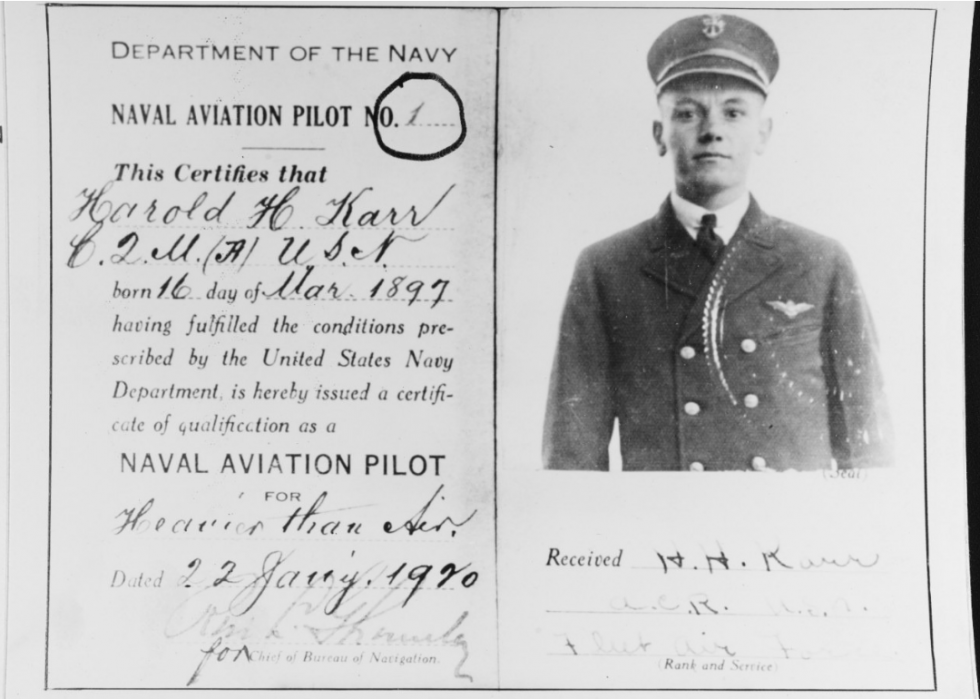 DEPARTMENT OF THE NAVY
NAVAL AVIATION PILOT NO. 1
This Certifies that
Harold H. Karr
C.Q.M.(A) U.S.N.
born 16 day of Mar. 1897
having fulfilled the conditions pre-
scribed by the United States Navy
Department, is hereby issued a certifi-
cate of qualification as a
NAVAL AVIATION PILOT
FOR
Heavier than Air.
Dated 22 Jan'y. 1920
for Chief of Bureau of Navigation.
(Seal)
Received H. H. Karr
A.C.R. U.S.N.
Fleet Air
(Rank and Service)